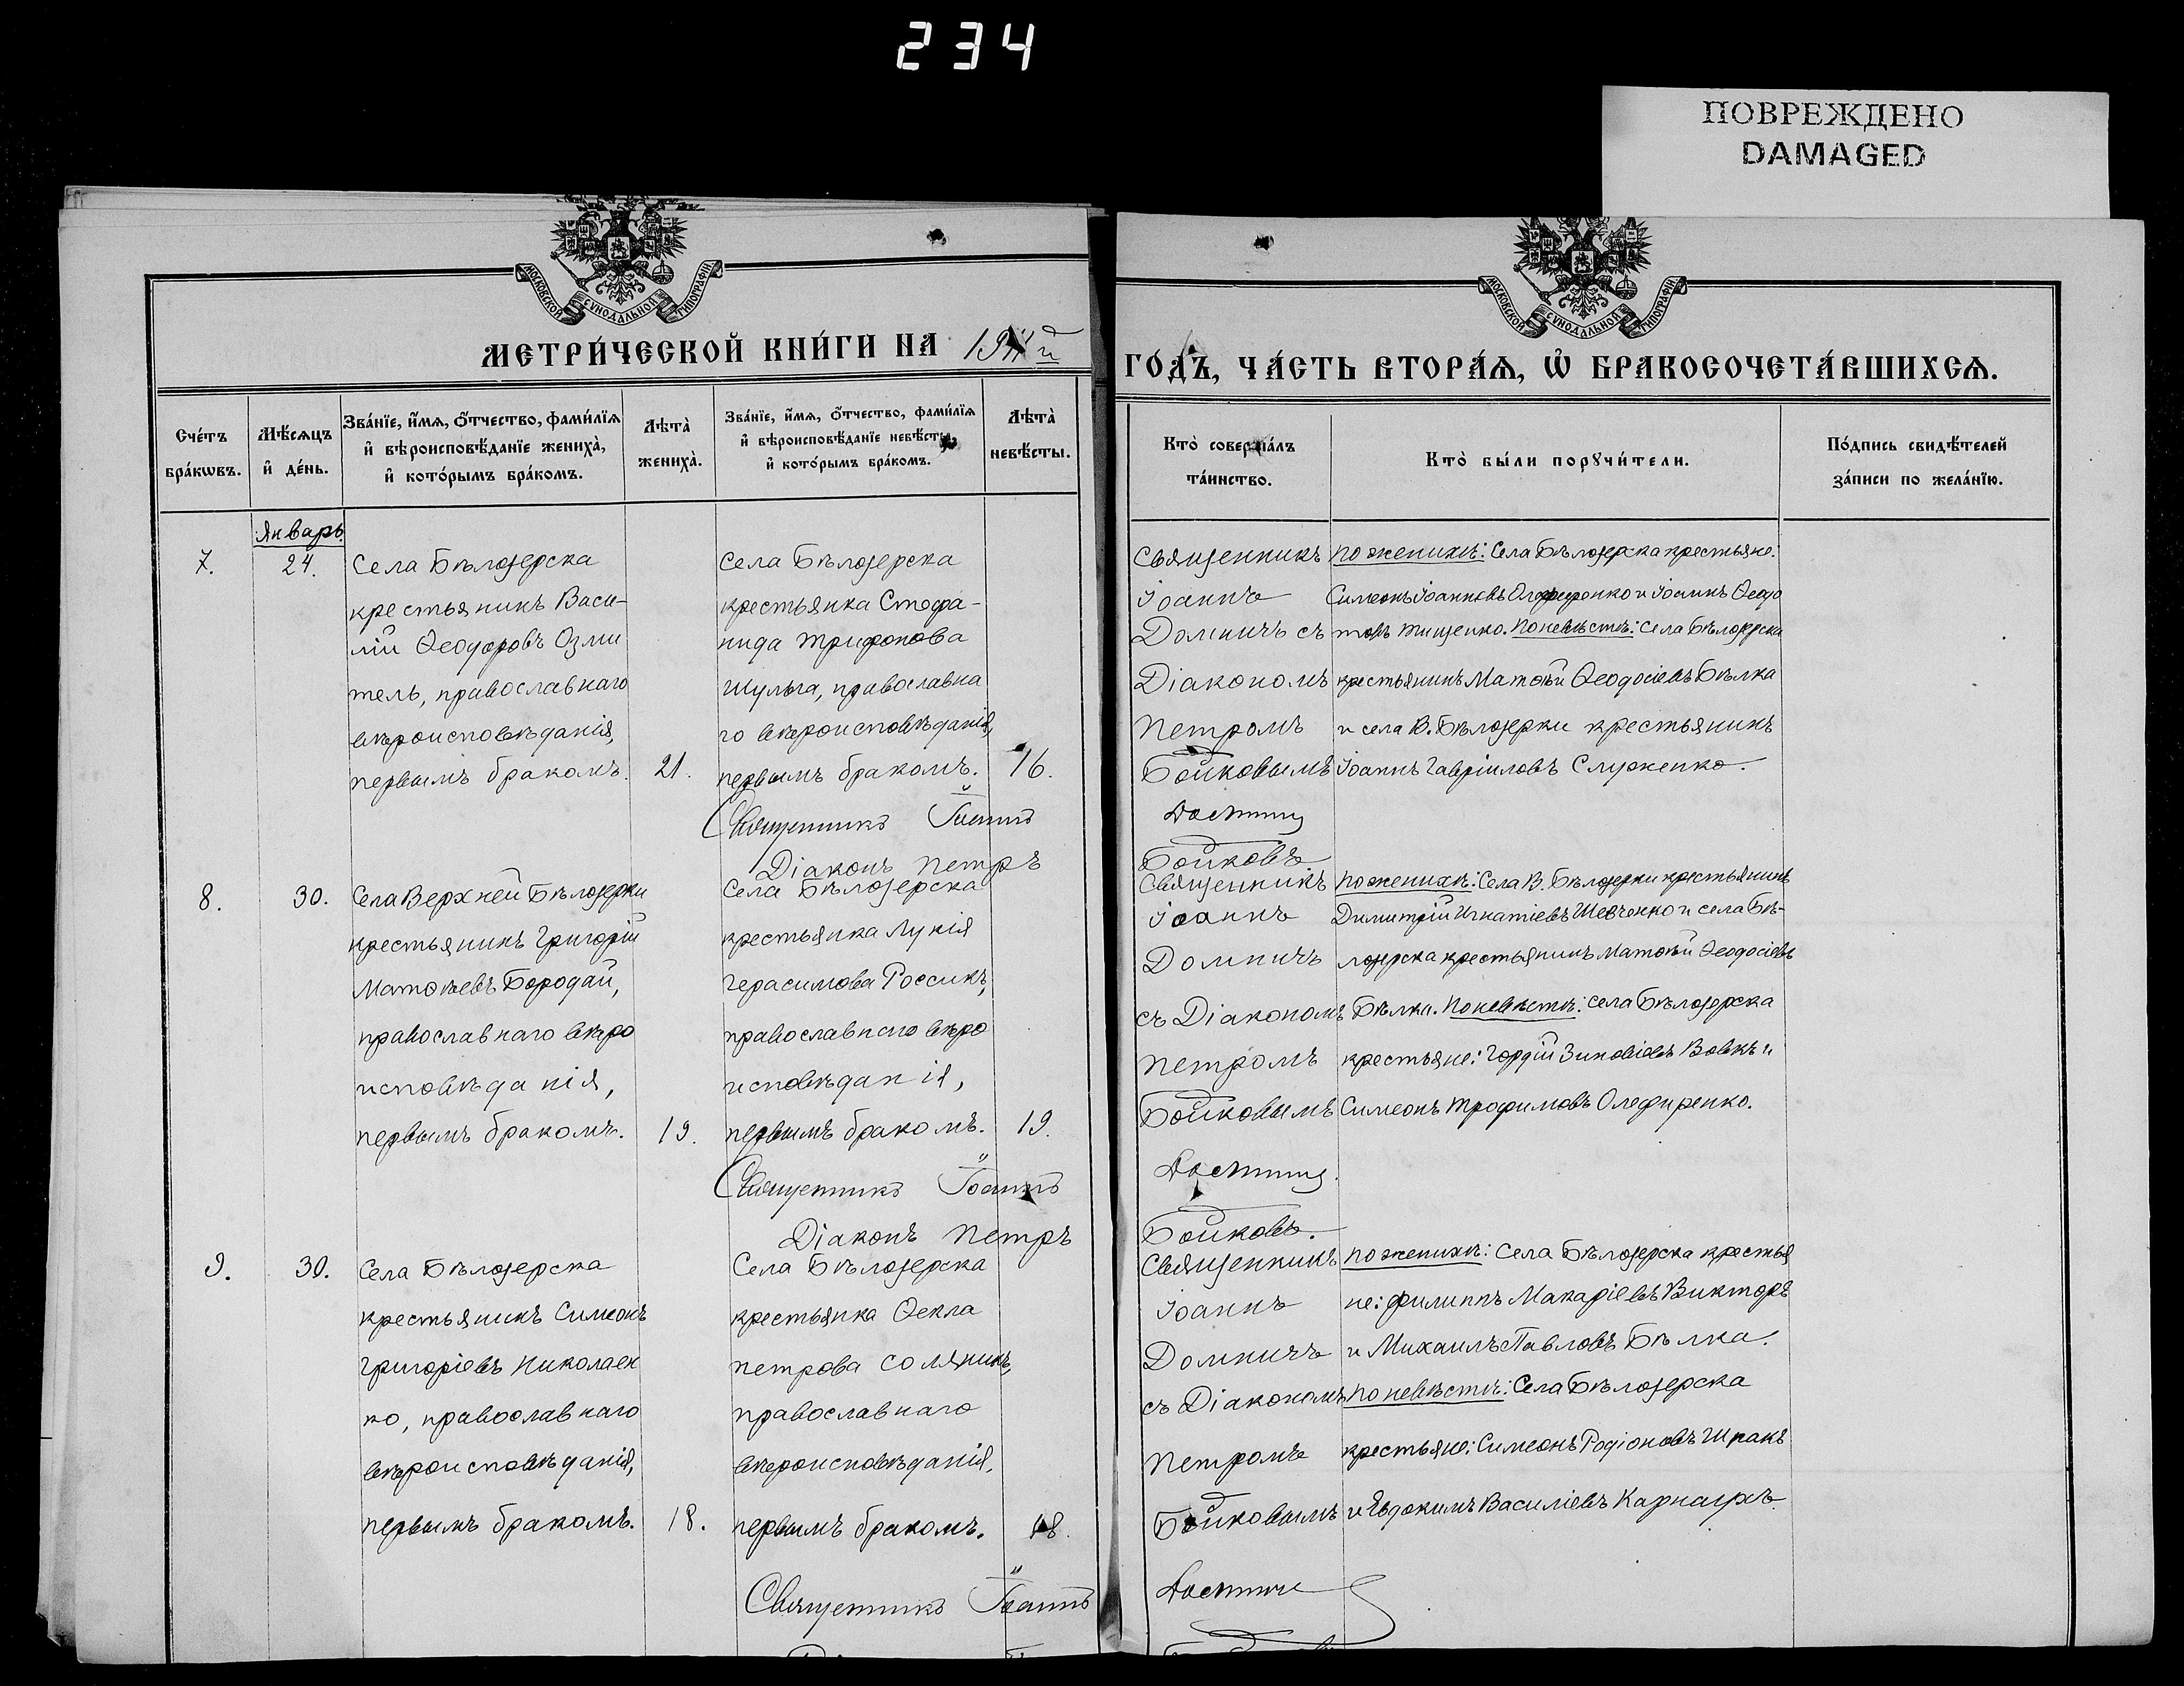 234
ПОВРЕЖДЕНО
DAMAGED
МОСКОВСКОЙ СѴНОДАЛЬНОЙ ТИПОГРАФІИ
МОСКОВСКОЙ СѴНОДАЛЬНОЙ ТИПОГРАФІИ
МЕТРИ́ЧЕСКОЙ КНИ́ГИ НА й ГО́ДЪ, ЧА́СТЬ ВТОРА́Ѧ, Ѡ҆ БРАКОСОЧЕТА́ВШИХСѦ.
Сче́тъ бра́кѡвъ.
Мѣ́сѧцъ и҆ де́нь.
Зва́нїе, и҆́мѧ, ѻ҆́тчество, фами́лїѧ и҆ вѣроисповѣ́данїе жениха̀, и҆ кото́рымъ бра́комъ.
Лѣта̀ жениха̀.
Зва́нїе, и҆́мѧ, ѻ҆́тчество, фами́лїѧ и҆ вѣроисповѣ́данїе невѣ́сты, и҆ кото́рымъ бра́комъ.
Лѣта̀ невѣ́сты.
Кто̀ соверша́лъ та́инство.
Кто̀ бы́ли порꙋчи́тели.
По́дпись свидѣ́телей за́писи по жела́нїю.
Январь.
7.
24.
Села Бѣлозерска
крестьянинъ Васи-
лій Ѳеодоровъ Озми
тель, православнаго
вѣроисповѣданія,
первымъ бракомъ.
21.
Села Бѣлозерска
крестьянка Стефа-
нида Трифонова
Шульга, православна
го вѣроисповѣданія,
первымъ бракомъ.
16.
Священникъ Іоаннъ
Діаконъ Петръ
Священникъ
Іоаннъ
Домничъ съ
Діакономъ
Петромъ
Бойковымъ
Домничъ
Бойковъ
По женихѣ: Села Бѣлозерска крестьяне:
Симеонъ Іоанновъ Олефиренко и Іоаннъ Ѳеодо
товъ Тищенко. По невѣстѣ: Села Бѣлозерска
крестьянинъ Матѳей Ѳеодосіевъ Бѣлка
и села В. Бѣлозерки крестьянинъ
Іоаннъ Гавріиловъ Служенко.
8.
30.
Села Верхней Бѣлозерки
крестьянинъ Григорій
Матѳеевъ Бородай,
православнаго вѣро
исповѣданія,
первымъ бракомъ.
19.
Села Бѣлозерска
крестьянка Лукія
Герасимова Россикъ,
православнаго вѣро
исповѣданія,
первымъ бракомъ.
19.
Священникъ Іоаннъ
Діаконъ Петръ
Священникъ
Іоаннъ
Домничъ
съ Діакономъ
Петромъ
Бойковымъ
Домничъ.
Бойковъ.
По женихѣ: Села В. Бѣлозерки крестьянинъ
Димитрій Игнатіевъ Шевченко и села Бѣ-
лозерска крестьянинъ Матѳей Ѳеодосіевъ
Бѣлка. По невѣстѣ: Села Бѣлозерска
крестьяне: Гордій Зиновіевъ Вовкъ и
Симеонъ Трофимовъ Олефиренко.
9.
30.
Села Бѣлозерска
крестьянинъ Симеонъ
Григоріевъ Николаен
ко, православнаго
вѣроисповѣданія,
первымъ бракомъ.
18.
Села Бѣлозерска
крестьянка Ѳекла
Петрова Соляникъ,
православнаго
вѣроисповѣданія,
первымъ бракомъ.
18.
Священникъ Іоаннъ
Священникъ
Іоаннъ
Домничъ
съ Діакономъ
Петромъ
Бойковымъ
Домничъ
По женихѣ: Села Бѣлозерска крестья
не: Филиппъ Макаріевъ Викторъ
и Михаилъ Павловъ Бѣлка.
По невѣстѣ: Села Бѣлозерска
крестьяне: Симеонъ Родіоновъ Шпакъ
и Евдокимъ Василіевъ Карнаухъ.